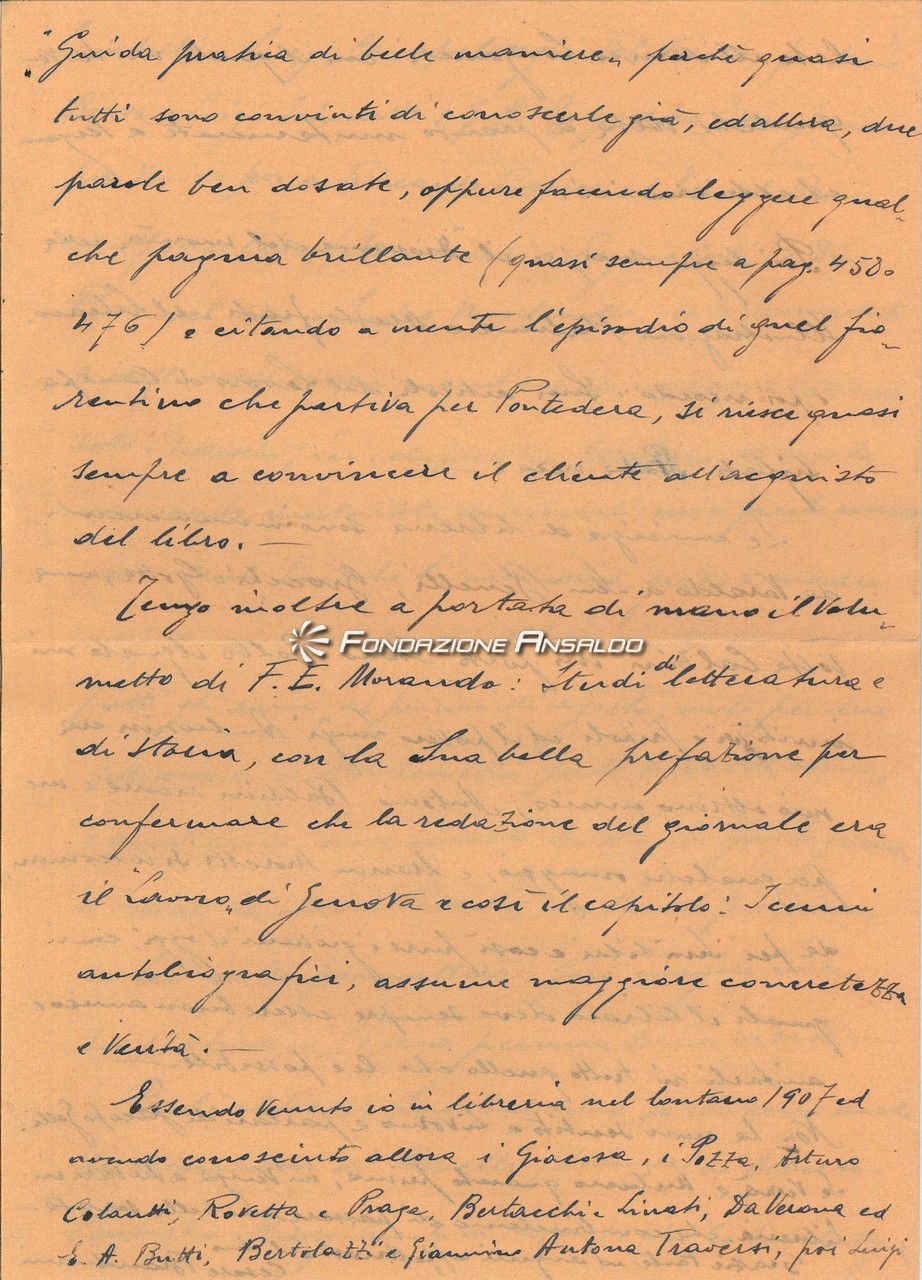 "Guida pratica di belle maniere„ perchè quasi
tutti sono convinti di conoscerle già, ed allora, due
parole ben dosate, oppure facendo leggere qual-
che pagina brillante (quasi sempre a pag. 458 o
476) e citando a mente l'episodio di quel fio-
rentino che partiva per Pontedera, si riesce quasi
sempre a convincere il cliente all'acquisto
del libro. —
Tengo inoltre a portata di mano il volu-
FONDAZIONE ANSALDO
metto di F. E. Morando: Studi di letteratura e
di storia, con la Sua bella prefazione per
confermare che la redazione del giornale era
il "Lavoro„ di Genova e così il capitolo: I cenni
autobiografici, assume maggiore concretezza
e verità. —
Essendo venuto io in libreria nel lontano 1907 ed
avendo conosciuto allora i Giacosa, i Pozza, Arturo
Colautti, Rovetta e Praga, Bertacchi e Linati, Da Verona ed
E. A. Butti, Bertolazzi e Giannino Antona Traversi, poi Luigi